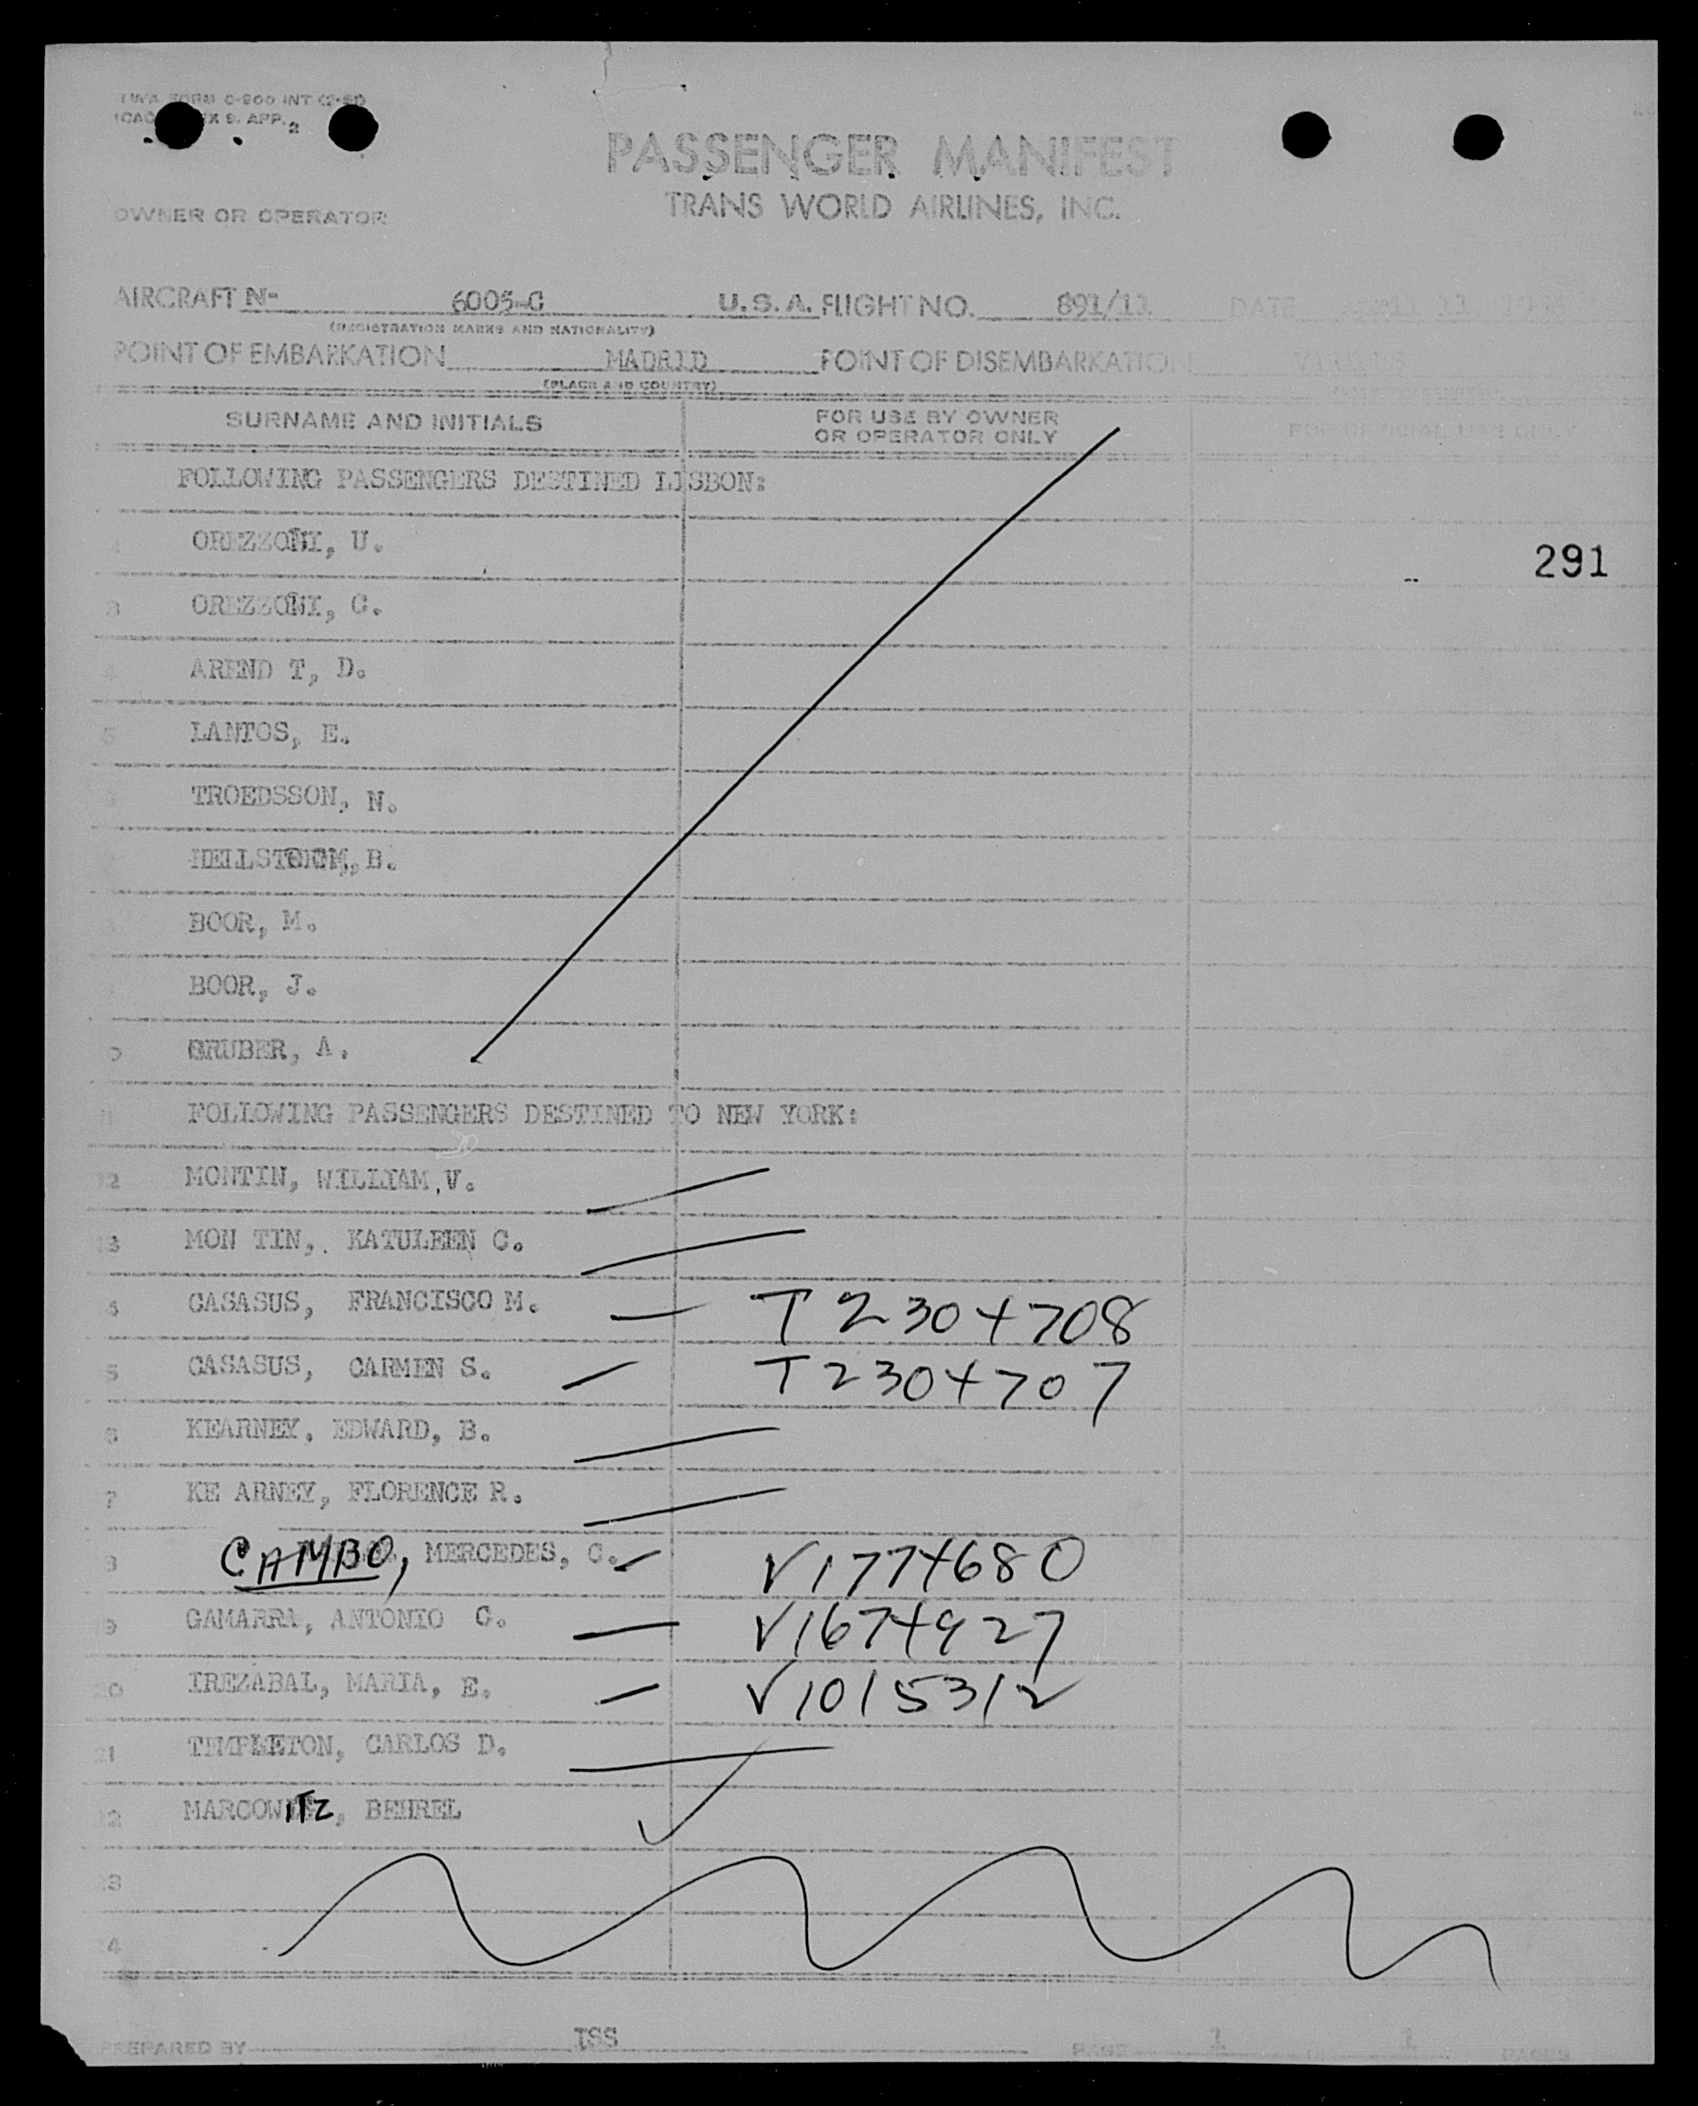 TWA FORM C-200 INT (2-51)
ICAO X 9. APP. 2
PASSENGER MANIFEST
TRANS WORLD AIRLINES, INC.
OWNER OR OPERATOR
AIRCRAFT N- 6005-C U.S.A. FLIGHT NO. 891/13 DATE
(REGISTRATION MARKS AND NATIONALITY)
POINT OF EMBARKATION MADRID POINT OF DISEMBARKATION
(PLACE AND COUNTRY)
SURNAME AND INITIALS FOR USE BY OWNER OR OPERATOR ONLY FOR OFFICIAL USE ONLY
FOLLOWING PASSENGERS DESTINED LISBON:
OREZZONI, U.
291
3 OREZZONI, C.
4 AREND T, D.
5 LANTOS, E.
TROEDSSON, N.
HELLSTROM, B.
BOOR, M.
BOOR, J.
0 GRUBER, A.
11 FOLLOWING PASSENGERS DESTINED TO NEW YORK:
12 MONTIN, WILLIAM, V.
13 MON TIN, KATULEEN C.
4 CASASUS, FRANCISCO M. — T2304708
5 CASASUS, CARMEN S. — T2304707
6 KEARNEY, EDWARD, B.
7 KE ARNEY, FLORENCE R.
8 CAMBO, MERCEDES, C. — V1774680
9 GAMARRA, ANTONIO C. — V1674927
20 IREZABAL, MARIA, E. — V1015312
21 TEMPLETON, CARLOS D.
22 MARCOWITZ, BEHREL
23
24
PREPARED BY TSS PAGE 1 OF 1 PAGES